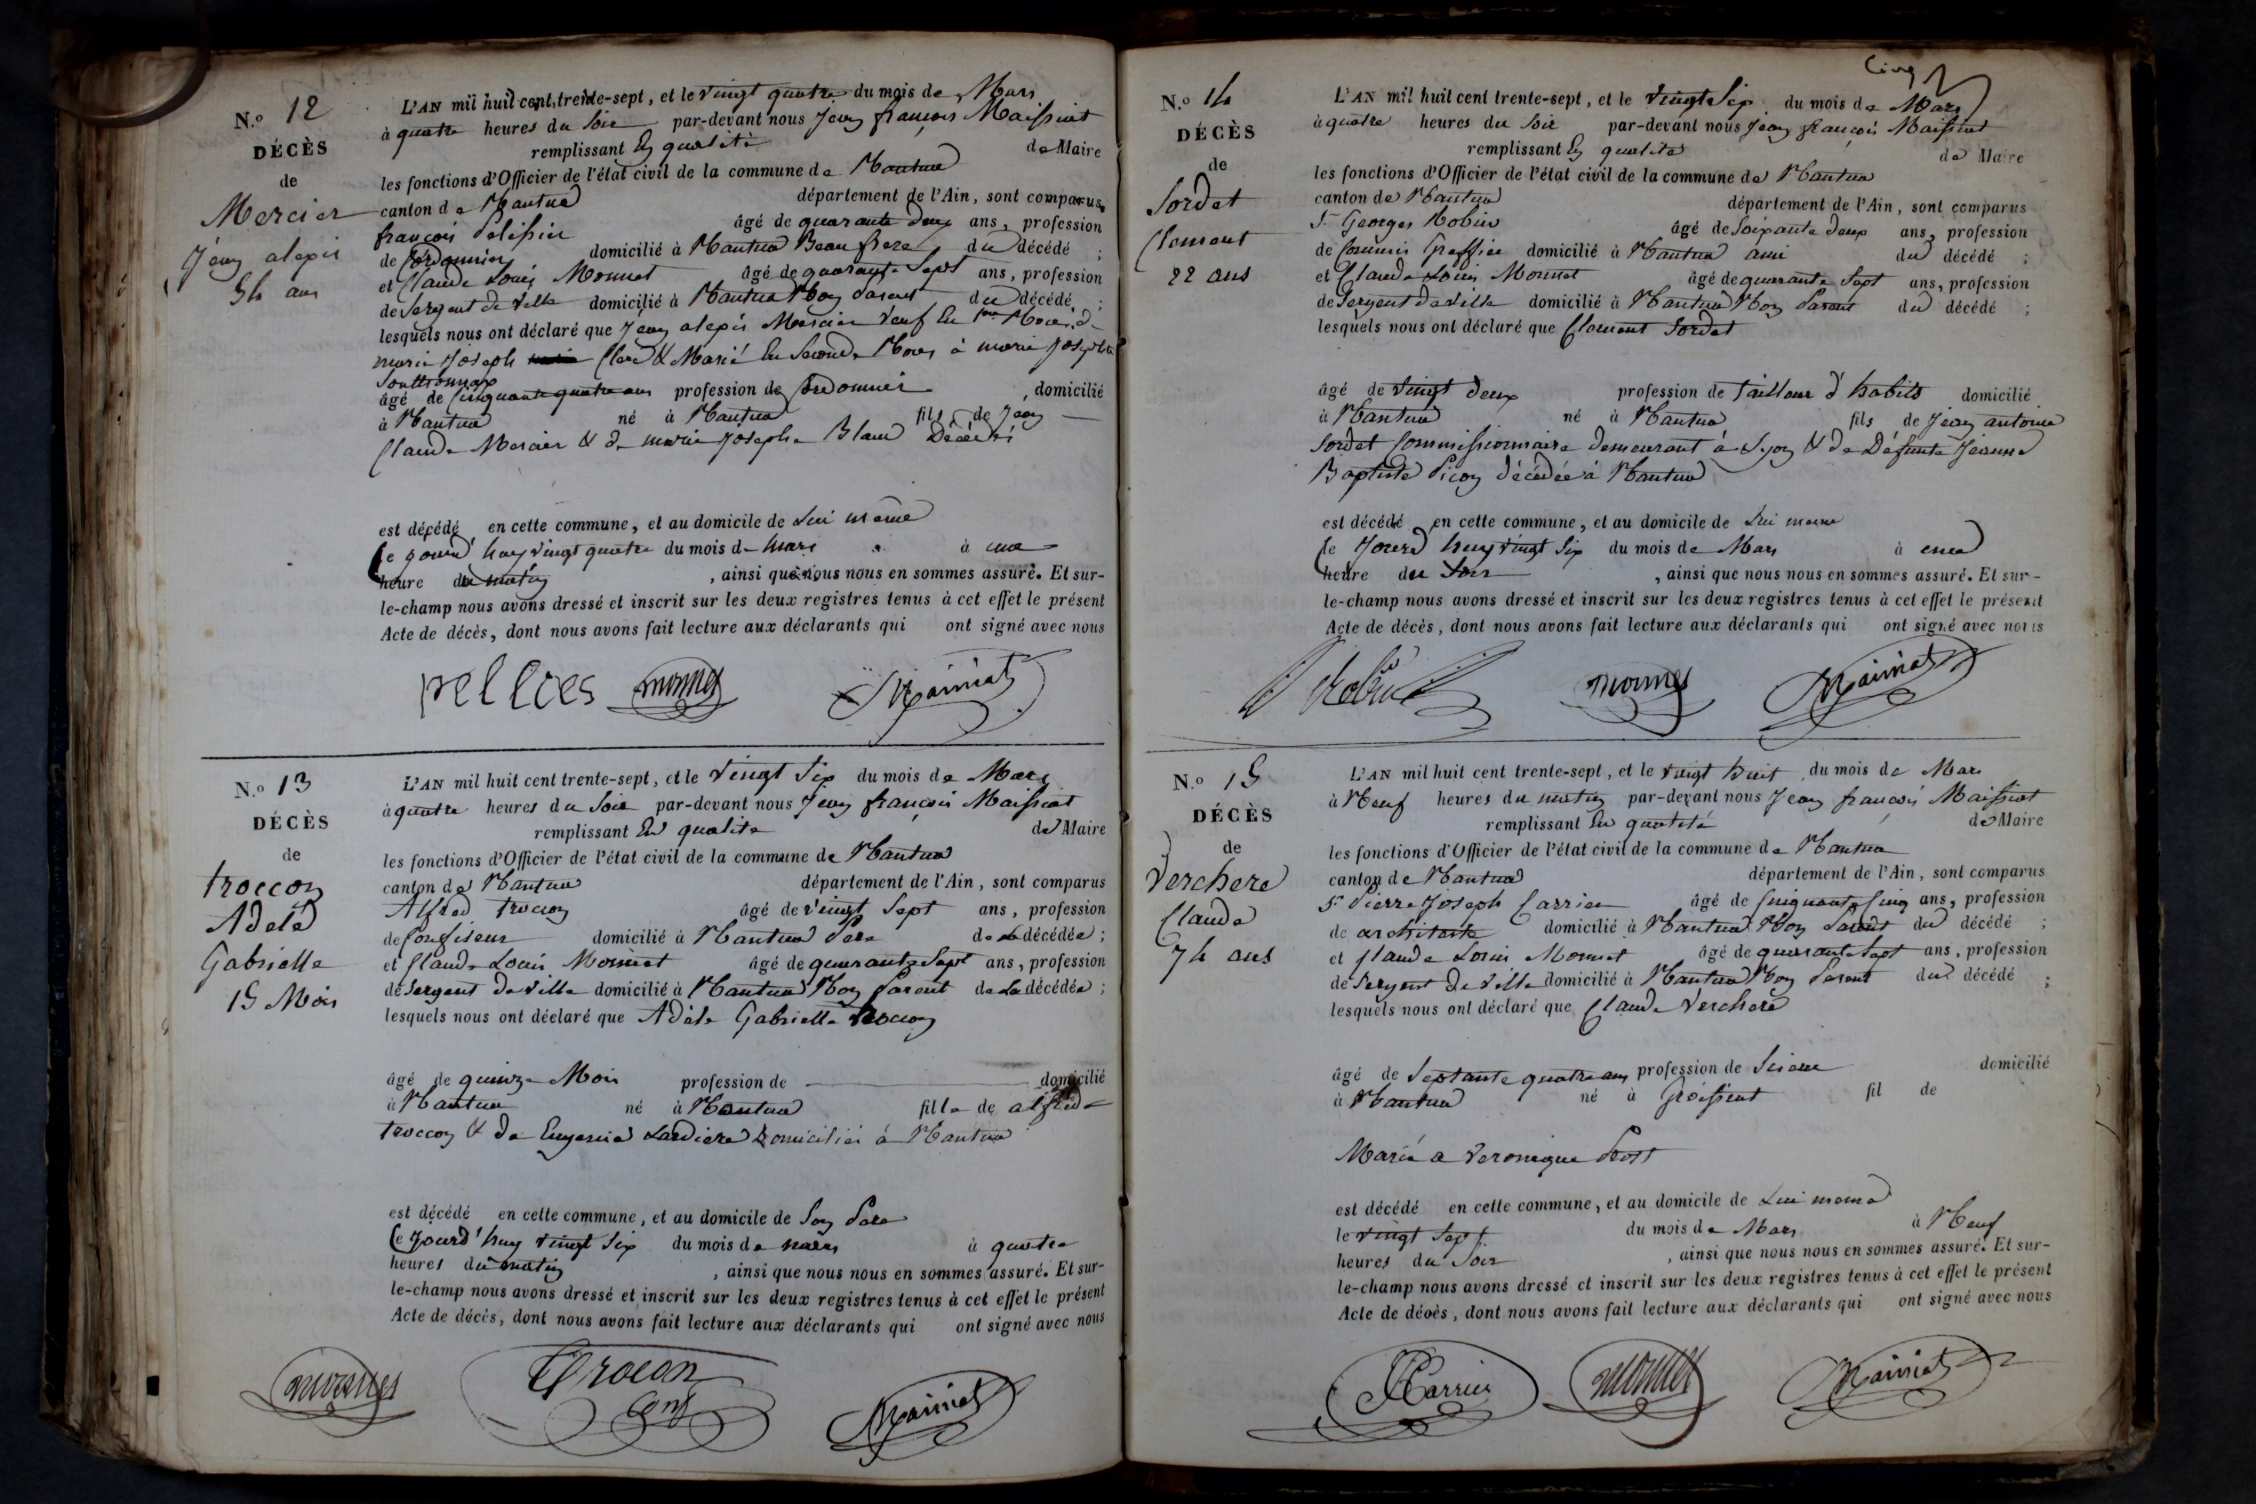 N.o 12
DÉCÈS
de
Mercier
Jean alexis
54 ans
L'AN mil huit cent trente-sept, et le vingt quatre du mois de Mars
à quatre heures du soir par-devant nous Jean françois Maissiat
remplissant En qualité de Maire
les fonctions d'Officier de l'état civil de la commune de Nantua
canton de Nantua département de l'Ain, sont comparus
françois Pelissier âgé de quarante deux ans, profession
de Cordonnier domicilié à Nantua Beau frere du décédé ;
et Claude Louis Monnet âgé de quarante Sept ans, profession
de Sergent de ville domicilié à Nantua Non Parent du décédé ;
lesquels nous ont déclaré que Jean alexis Mercier veuf En 1res Noces de
marie Joseph Clerc & Marié En Seconde Noces à marie Josephte
Souttonnax
âgé de Cinquante quatre ans profession de Cordonnier domicilié
à Nantua né à Nantua fils de Jean
Claude Mercier & de marie Josephe Blanc Décédés
est décédé en cette commune, et au domicile de Lui même
Ce jourd'huy vingt quatre du mois de Mars à une
heure du matin , ainsi que nous nous en sommes assuré. Et sur-
le-champ nous avons dressé et inscrit sur les deux registres tenus à cet effet le présent
Acte de décès, dont nous avons fait lecture aux déclarants qui ont signé avec nous
monnet Maissiat
N.o 13
DÉCÈS
de
troccon
Adele
Gabrielle
15 Mois
L'AN mil huit cent trente-sept, et le vingt Six du mois de Mars
à quatre heures du Soir par-devant nous Jean françois Maissiat
remplissant En qualité de Maire
les fonctions d'Officier de l'état civil de la commune de Nantua
canton de Nantua département de l'Ain, sont comparus
Alfred troccon âgé de vingt Sept ans, profession
de Confiseur domicilié à Nantua Pere de la décédée ;
et Claude Louis Monnet âgé de quarante Sept ans, profession
de Sergent de ville domicilié à Nantua Non Parent de La décédée ;
lesquels nous ont déclaré que Adèle Gabrielle troccon
âgé de quinze Mois profession de domicilié
à Nantua né à Nantua fille de alfred
troccon & de Eugenie Lardiere Domiciliés à Nantua
est décédé en cette commune, et au domicile de Son Pere
Ce jourd'huy vingt Six du mois de mars à quatre
heures du matin , ainsi que nous nous en sommes assuré. Et sur-
le-champ nous avons dressé et inscrit sur les deux registres tenus à cet effet le présent
Acte de décès, dont nous avons fait lecture aux déclarants qui ont signé avec nous
monnet Trocon Maissiat
Cinq
N.o 14
DÉCÈS
de
Sordet
Clement
22 ans
L'AN mil huit cent trente-sept, et le vingt Six du mois de Mars
à quatre heures du Soir par-devant nous Jean françois Maissiat
remplissant En qualité de Maire
les fonctions d'Officier de l'état civil de la commune de Nantua
canton de Nantua département de l'Ain, sont comparus
Sr Georges Robin âgé de Soixante deux ans, profession
de Commis Greffier domicilié à Nantua ami du décédé ;
et Claude Louis Monnet âgé de quarante Sept ans, profession
de Sergent de ville domicilié à Nantua Non Parent du décédé ;
lesquels nous ont déclaré que Clement Sordet
âgé de vingt deux profession de Tailleur d'habits domicilié
à Nantua né à Nantua fils de Jean antoine
Sordet Commissionnaire demeurant à Lyon & de Défunte Jeanne
Baptiste Picon décédée à Nantua
est décédé en cette commune, et au domicile de Lui meme
Ce Jourd huy vingt Six du mois de Mars à une
heure du Soir , ainsi que nous nous en sommes assuré. Et sur-
le-champ nous avons dressé et inscrit sur les deux registres tenus à cet effet le présent
Acte de décès, dont nous avons fait lecture aux déclarants qui ont signé avec nous
Robin monnet Maissiat
N.o 15
DÉCÈS
de
Verchere
Claude
74 ans
L'AN mil huit cent trente-sept, et le vingt huit du mois de Mars
à Neuf heures du matin par-devant nous Jean françois Maissiat
remplissant En qualité de Maire
les fonctions d'Officier de l'état civil de la commune de Nantua
canton de Nantua département de l'Ain, sont comparus
Sr Pierre Joseph Carrier âgé de Cinquante Cinq ans, profession
de architecte domicilié à Nantua Non Parent du décédé ;
et Claude Louis Monnet âgé de quarante Sept ans, profession
de Sergent de ville domicilié à Nantua Non Parent du décédé ;
lesquels nous ont déclaré que Claude Verchere
âgé de Septante quatre ans profession de Scieur domicilié
à Nantua né à Groissiat fil de
Marié a Veronique Prost
est décédé en cette commune, et au domicile de Lui meme
le vingt Sept du mois de Mars à Neuf
heures du Soir , ainsi que nous nous en sommes assuré. Et sur-
le-champ nous avons dressé et inscrit sur les deux registres tenus à cet effet le présent
Acte de décès, dont nous avons fait lecture aux déclarants qui ont signé avec nous
Carrier monnet Maissiat